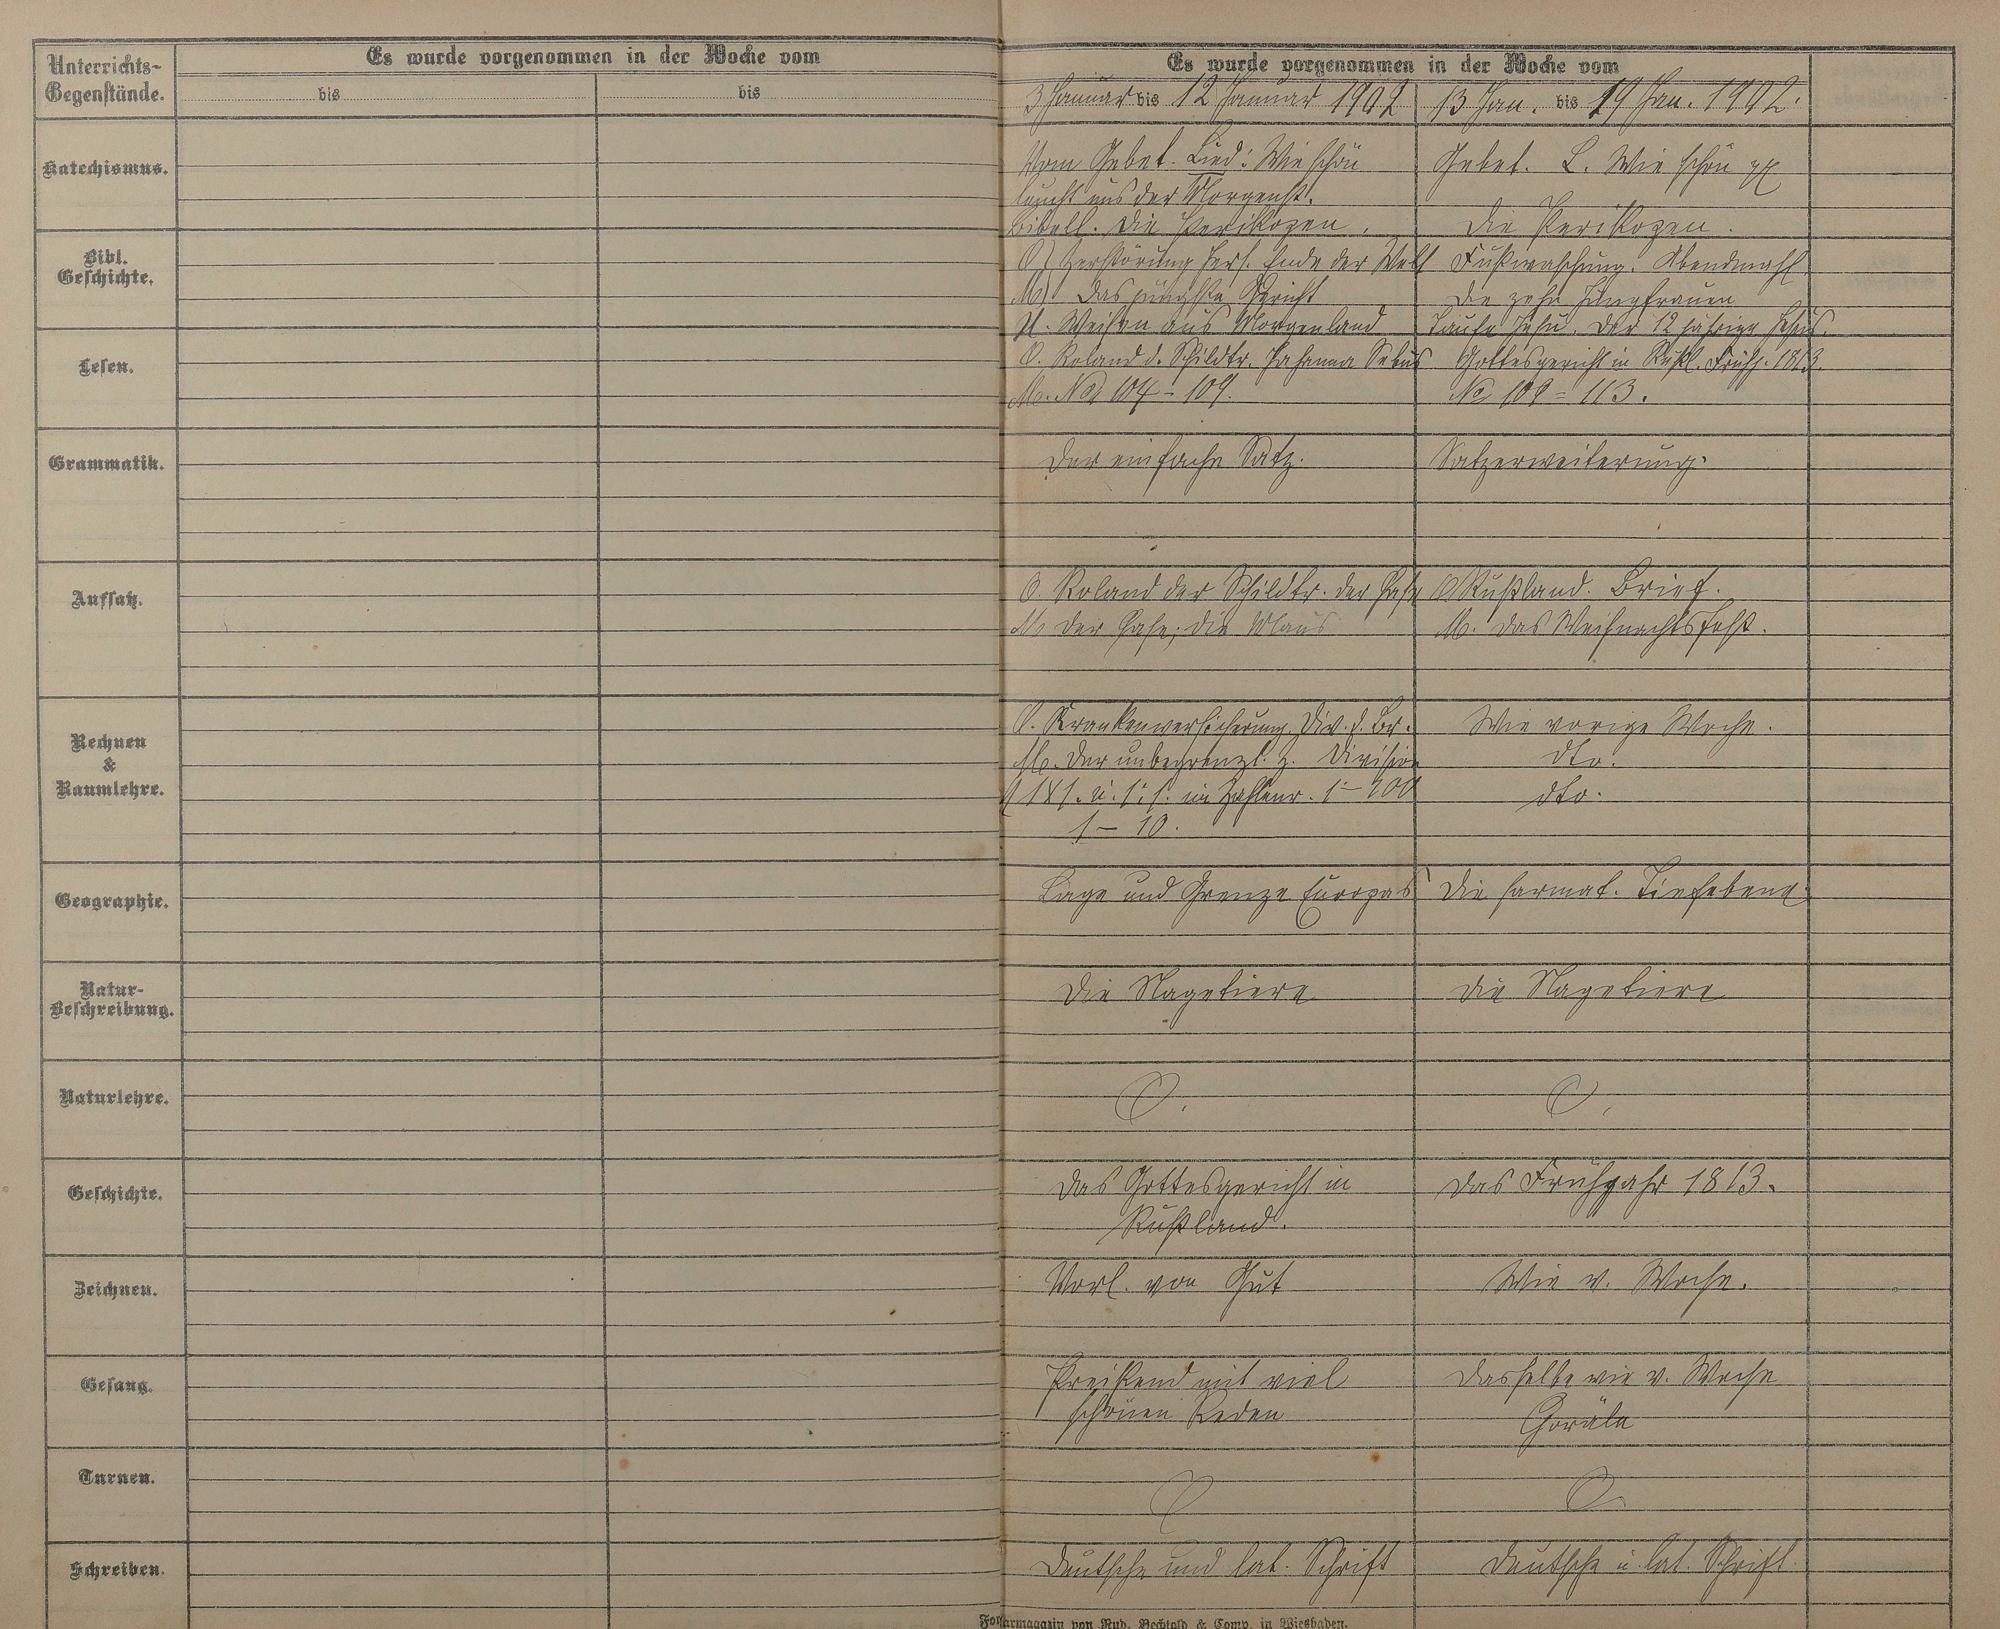 Unterrichts-
Gegenstände.
Es wurde vorgenommen in der Woche vom
bis
bis
Es wurde vorgenommen in der Woche vom
3 Januar bis 12 Januar 1902
13 Jan. bis 19 Jan. 1902.
Katechismus.
Vom Gebet. Lied: Wie schön
leucht uns der Morgenst.
Bibell. Die Perikopen.
Gebet. L. Wie schön
Die Perikopen.
Bibl.
Geschichte.
O) Zerstörung Jers. Ende der Welt
M) Das jüngste Gericht
U. Weisen aus Morgenland
Fußwaschung. Abendmahl
Die zehn Jungfrauen
Taufe Jesu. Der 12 jährige Jesus.
Lesen.
O. Roland d. Schildtr. Johanna Sebus
M. No 104 - 109.
Gottesgericht in Rußl. Frühj. 1813.
No 109 = 113.
Grammatik.
Der einfache Satz.
Satzerweiterung.
Aufsatz.
O. Roland der Schildtr. Der Hase
M. Der Hase; die Maus
O Rußland. Brief.
M. Das Weihnachtsfest.
Rechnen
&
Raumlehre.
O. Krankenversicherung. Div. d. Br.
M. Der unbegrenzt. Z. Division
1×1. u. 1:1. im Zahlenr. 1-100
1 - 10.
Wie vorige Woche.
dto.
dto.
Geographie.
Lage und Grenze Europas
Die sarmat. Tiefebene.
Natur-
Beschreibung.
Die Nagetiere
Die Nagetiere
Naturlehre.
Geschichte.
Das Gottesgericht in
Rußland.
Das Frühjahr 1813.
Zeichnen.
Vorl. von Gut
Wie v. Woche.
Gesang.
Preisend mit viel
schönen Reden
Dasselbe wie v. Woche
Choräle
Turnen.
Schreiben.
Deutsche und lat. Schrift
Deutsche u. lat. Schrift.
Formularmagazin von Rud. Bechtold & Comp. in Wiesbaden.